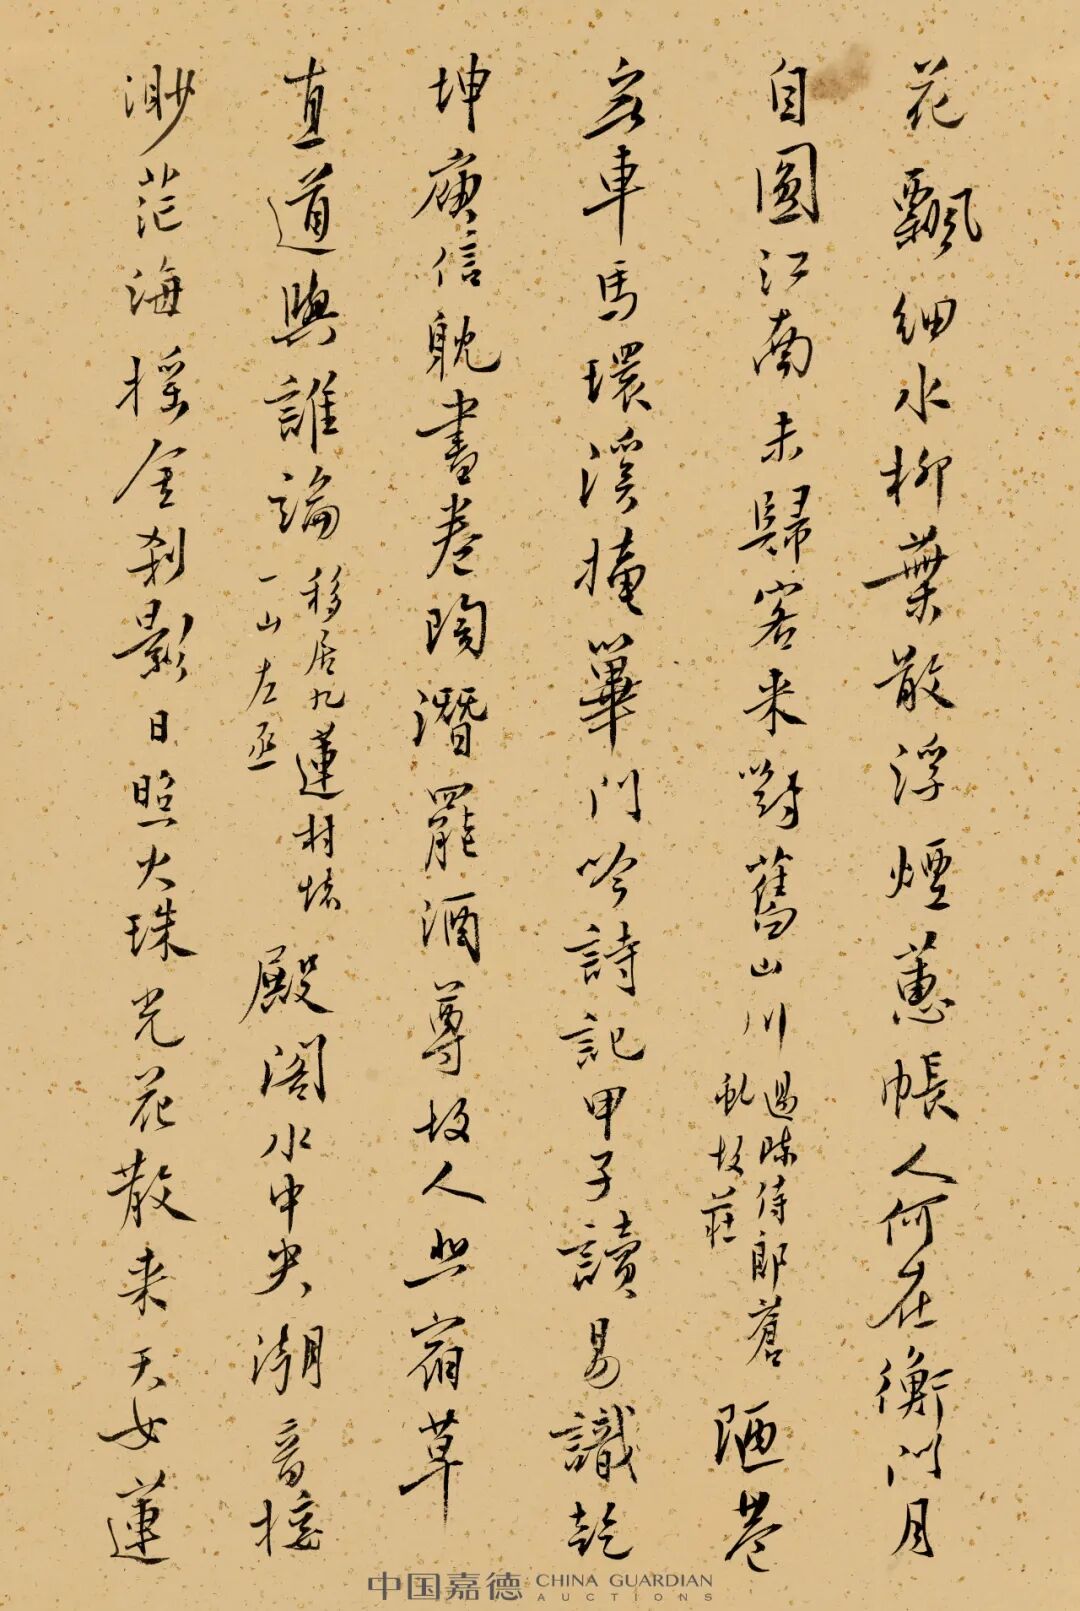 花飄細水柳葉散浮煙蕙帳人何在衡門月
自圓江南未歸客来對舊山川
過陳侍郎蒼
虬故莊
陋巷
容車馬環溪掩蓽門吟詩記甲子讀易識乾
坤庾信耽書卷陶潛罷酒尊故人悲宿草
直道與誰論
移居九蓮村懷
一山左丞
殿閣水中央潮音接
渺茫海搖金刹影日照火珠光花散来天女蓮
中国嘉德 CHINA GUARDIAN
AUCTIONS